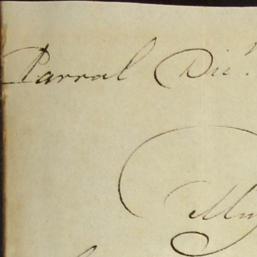 Parral Dic.
Muy